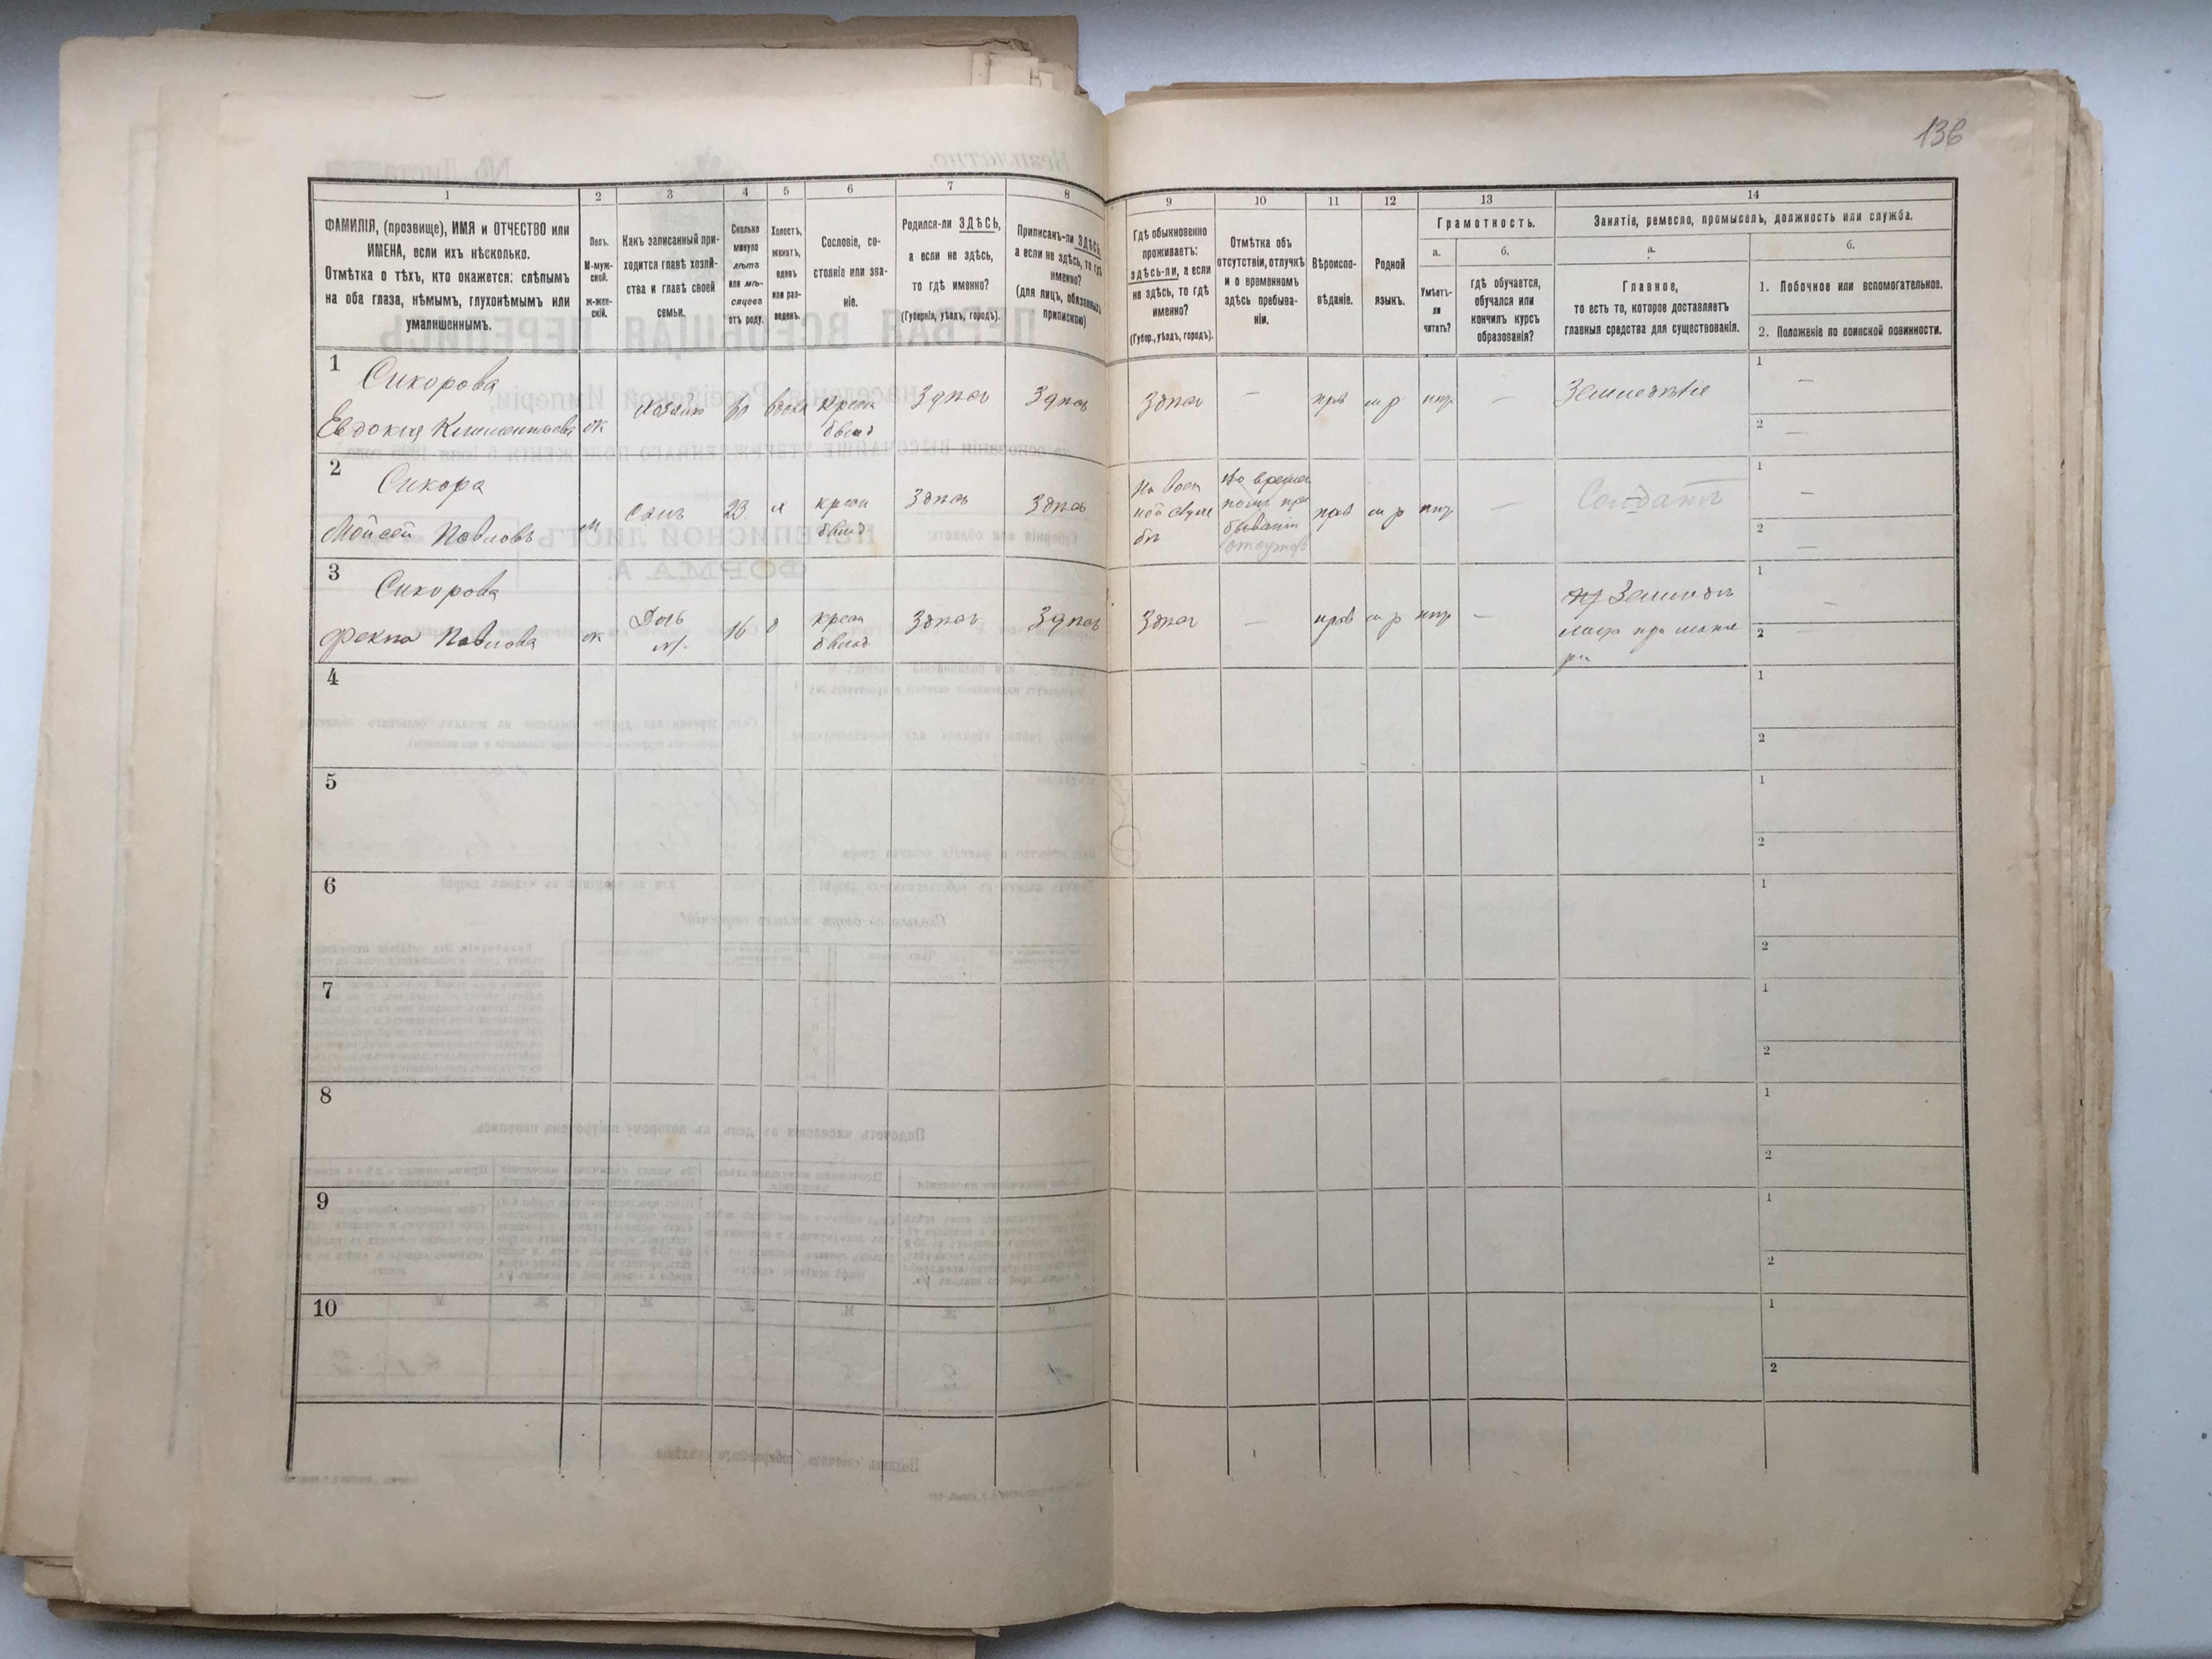 136
1
2
3
4
5
6
7
8
9
10
11
12
13
14
ФАМИЛІЯ, (прозвище), ИМЯ и ОТЧЕСТВО или
ИМЕНА, если ихъ нѣсколько.
Отмѣтка о тѣхъ, кто окажется: слѣпымъ
на оба глаза, нѣмымъ, глухонѣмымъ или
умалишеннымъ.
Полъ.
М-муж-
ской.
ж-жен-
скій.
Какъ записанный при-
ходится главѣ хозяй-
ства и главѣ своей
семьи.
Сколько
минуло
лѣтъ
или мѣ-
сяцевъ
отъ роду.
Холостъ,
женатъ,
вдовъ
или раз-
веденъ.
Сословіе, со-
стояніе или зва-
ніе.
Родился-ли ЗДѢСЬ,
а если не здѣсь,
то гдѣ именно?
(Губернія, уѣздъ, городъ).
Приписанъ-ли ЗДѢСЬ,
а если не здѣсь, то гдѣ
именно?
(для лицъ, обязанныхъ
припискою)
Гдѣ обыкновенно
проживаетъ:
здѣсь-ли, а если
не здѣсь, то гдѣ
именно?
(Губер., уѣздъ, городъ).
Отмѣтка объ
отсутствіи, отлучкѣ
и о временномъ
здѣсь пребыва-
ніи.
Вѣроиспо-
вѣданіе.
Родной
языкъ.
Грамотность.
а.
Умѣетъ-
ли
читать?
б.
гдѣ обучается,
обучался или
кончилъ курсъ
образованія?
Занятіе, ремесло, промыселъ, должность или служба.
а.
Главное,
то есть то, которое доставляетъ
главныя средства для существованія.
б.
1. Побочное или вспомогательное.
2. Положеніе по воинской повинности.
1
Сикорова
Евдокия Климентьева
ж
хозяйка
вдова
крест
Здѣсь
Здѣсь
Здѣсь
—
прав
м р
нѣт
—
Земледѣліе
1 —
2 —
2
Сикора
Мойсей Павловъ
м
сынъ
23
х
крест
Здѣсь
Здѣсь
На воен
ной служ
бѣ
прав
м р
нѣт
—
Солдатъ
1 —
2 —
3
Сикорова
Фекла Павлова
ж
Дочь
16
д
крест
Здѣсь
Здѣсь
Здѣсь
—
прав
м р
нѣт
—
при мате
ри
1 —
2 —
4
1
2
5
1
2
6
1
2
7
1
2
8
1
2
9
1
2
10
1
2